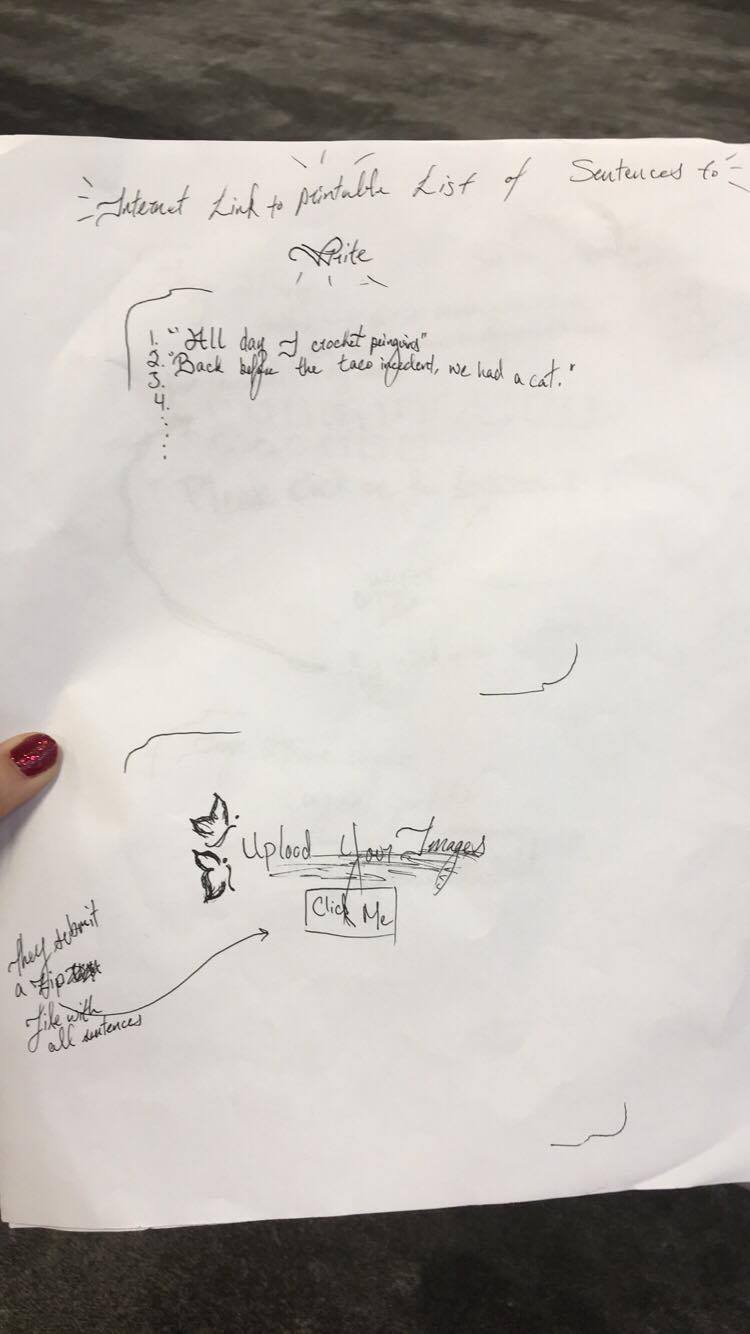 Internet Link to printable List of Sentences to
Write
1. "All day I crochet penguins"
2. "Back before the taco incedent, we had a cat."
3.
4.
Upload Your Images
Click Me
They submit
a Zip
File with
all sentences